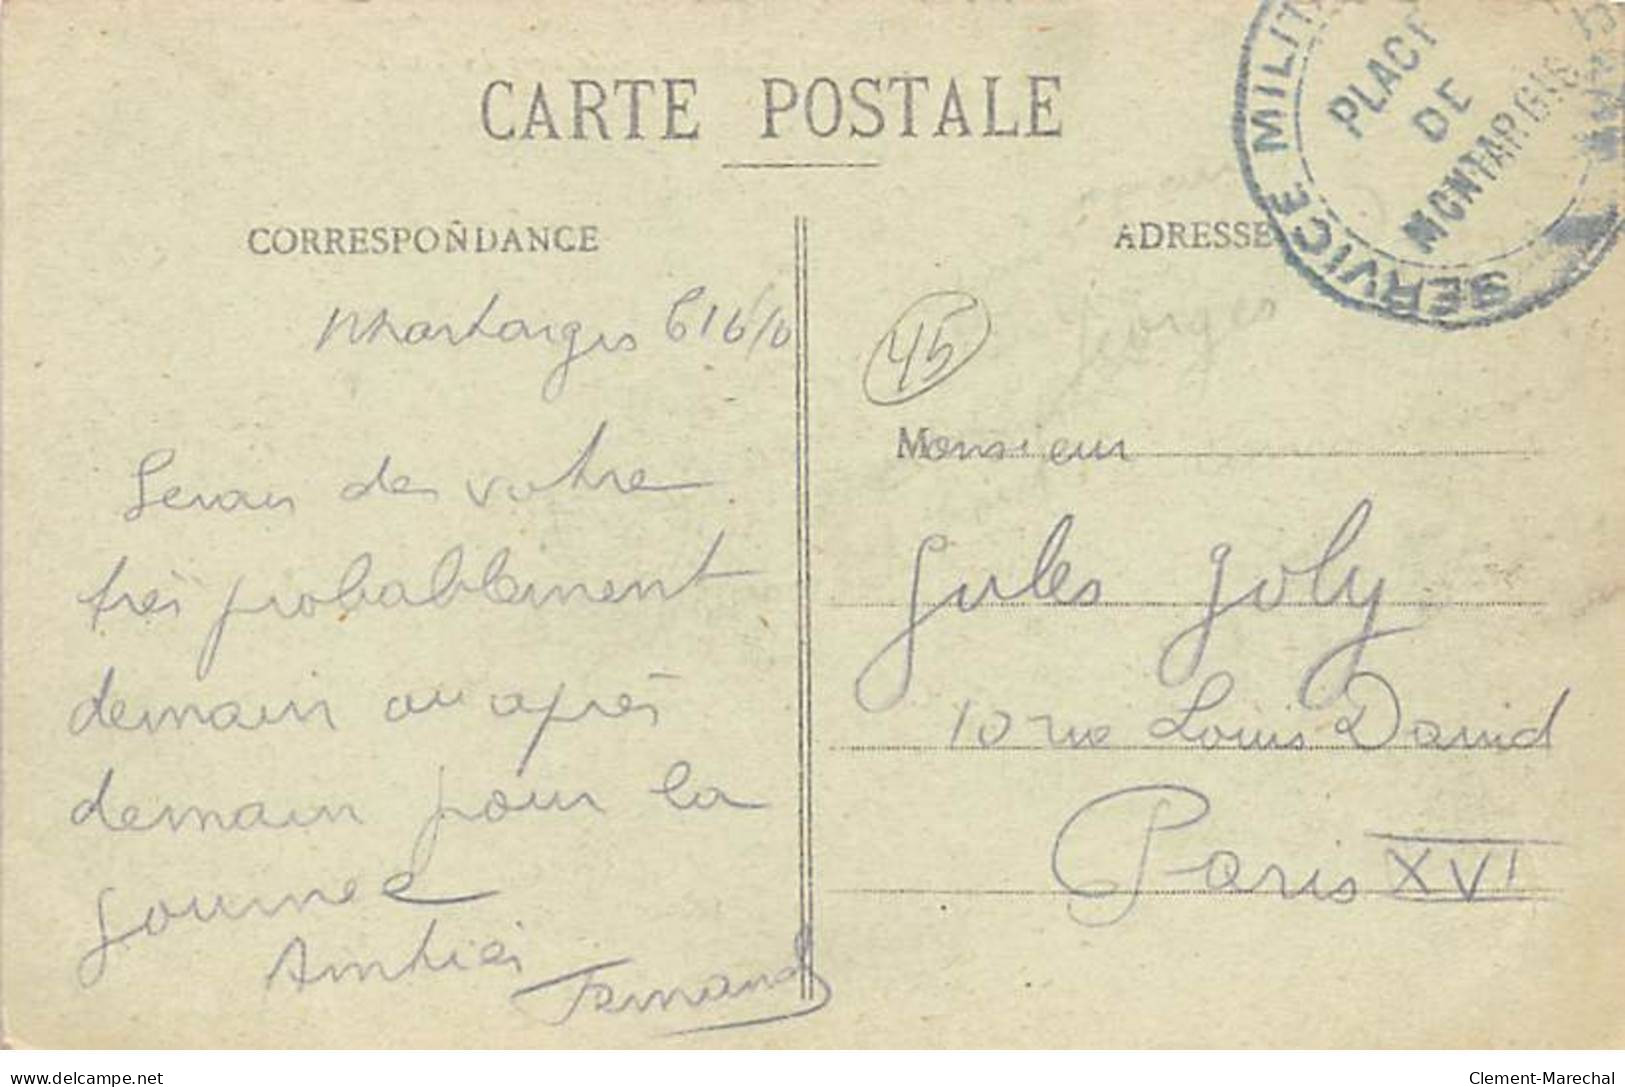 CARTE POSTALE
SERVICE MILIT
PLACE
DE
MONTARGIS
CORRESPONDANCE
ADRESSE
Montargis 6/6/6
45
Georges
Serai des votre
très probablement
demain ou après
demain pour la
journee
Amitiés
Fernand
Monsieur
Jules Joly
10 rue Louis David
Paris XVI
delcampe.net
Clement-Marechal